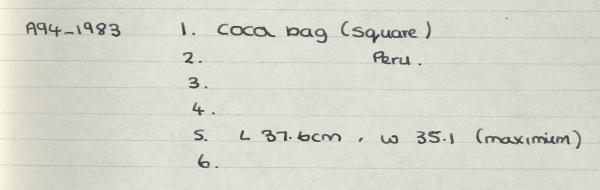 A94-1983 1. coca bag (square)
2. Peru.
3.
4.
5. L 37.6cm, W 35.1 (maximum)
6.